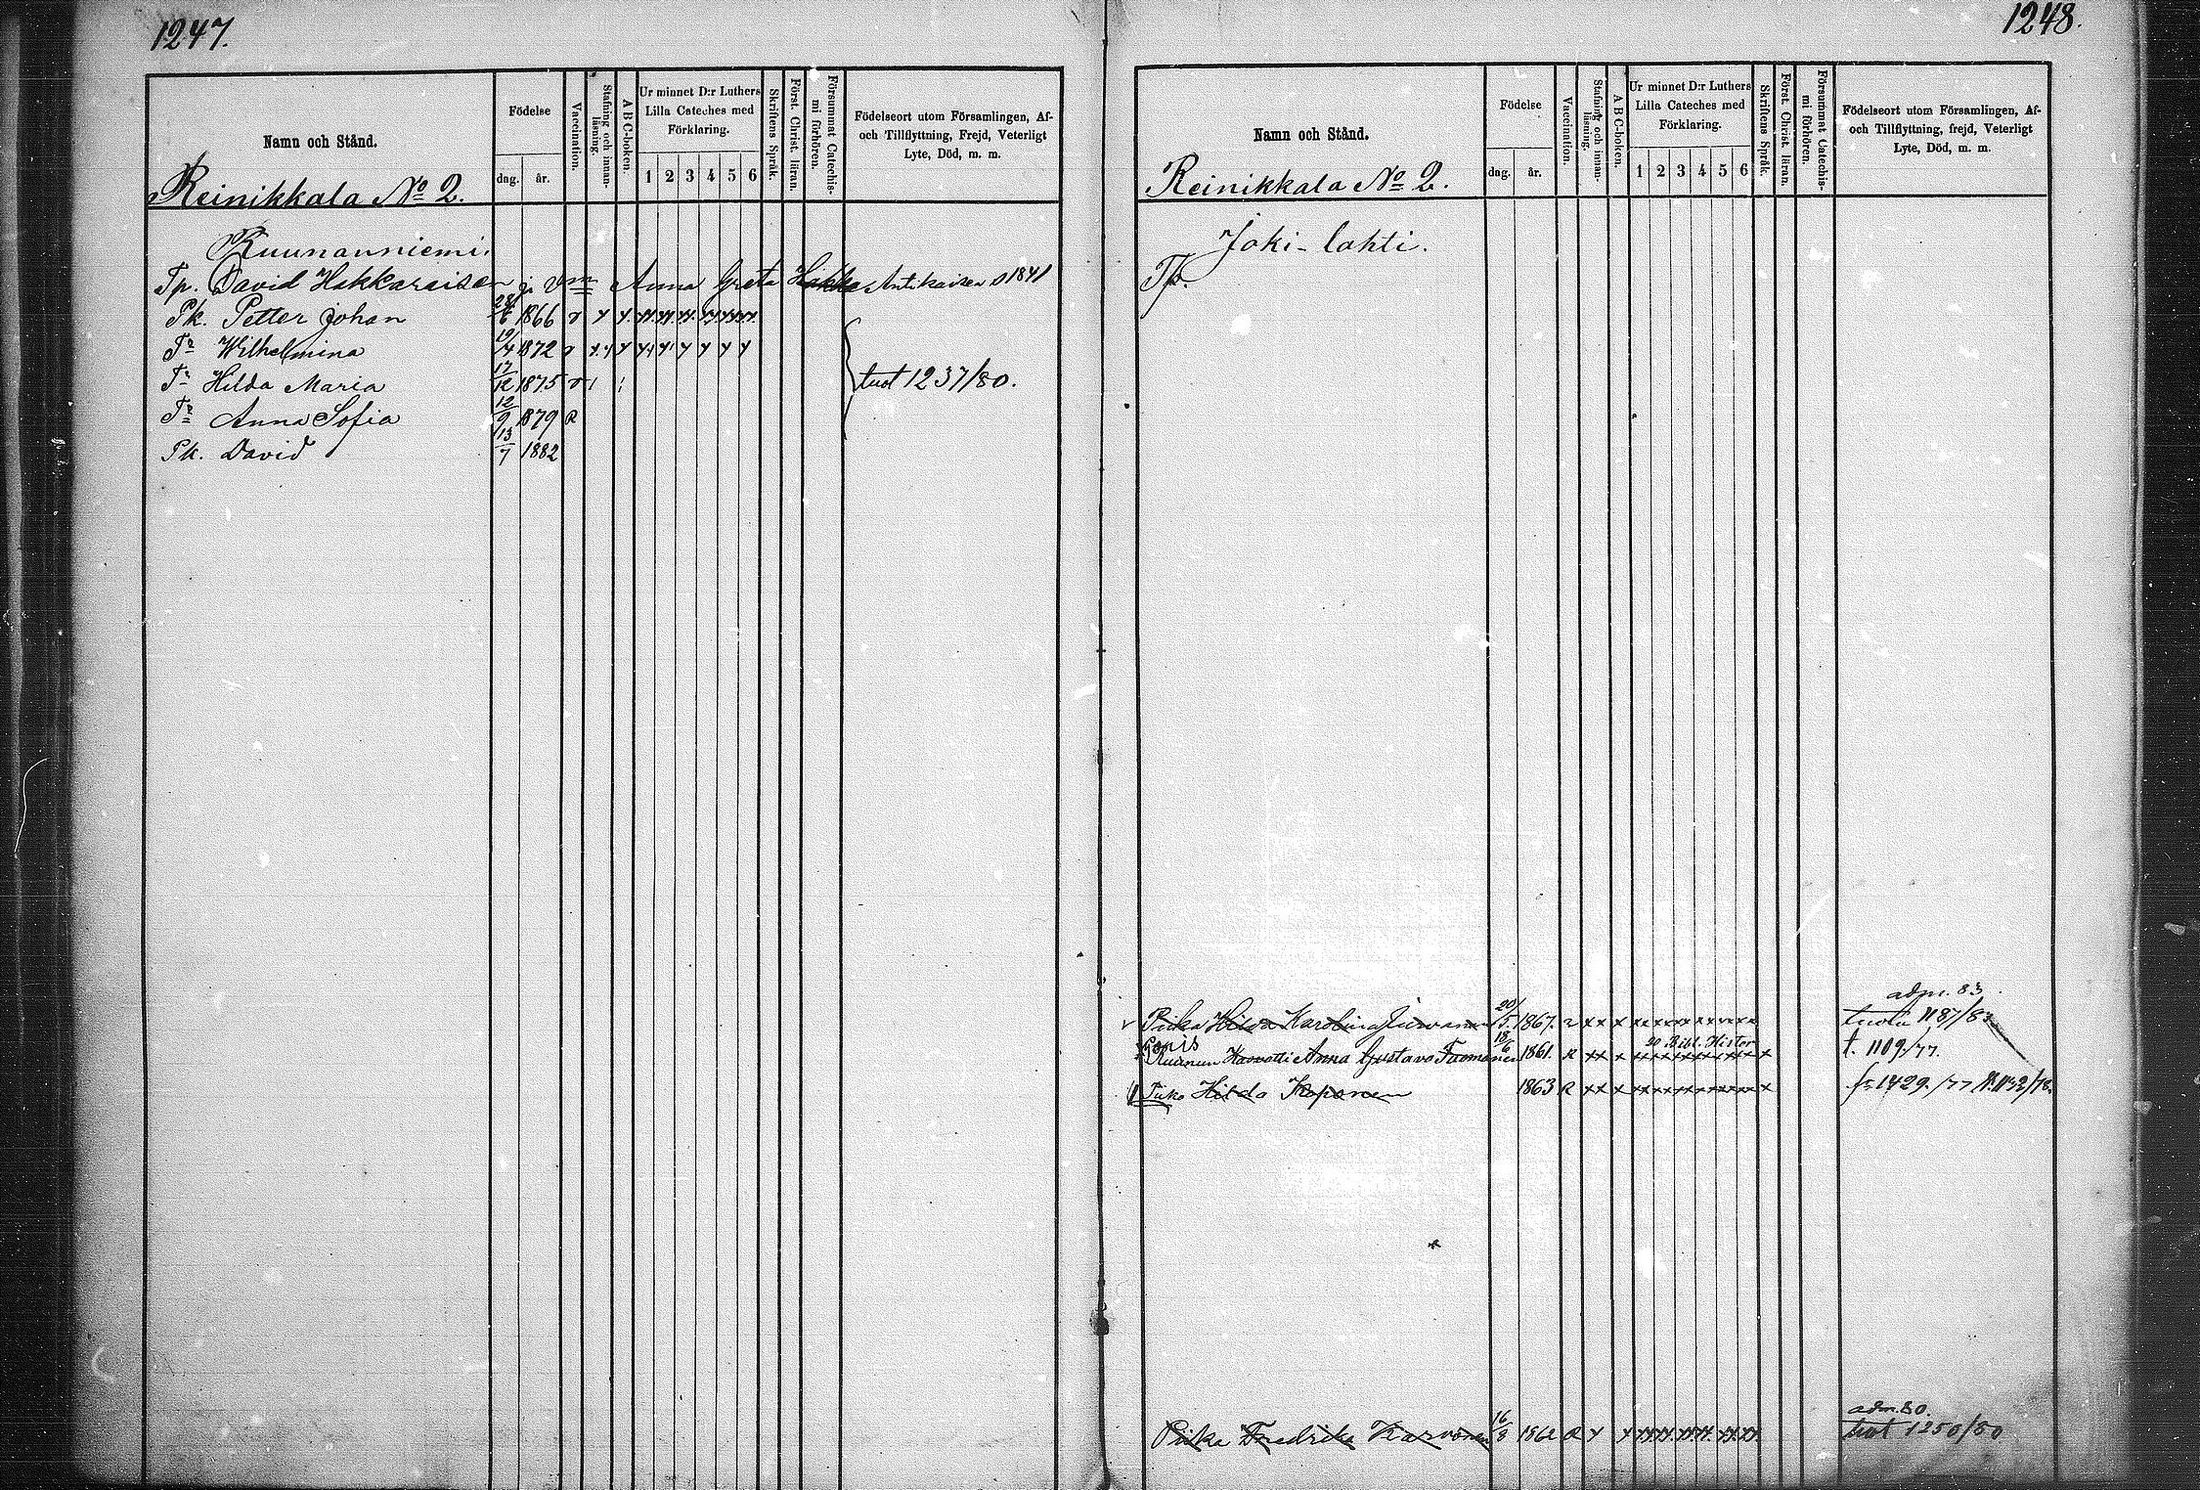 1247.
Namn och Stånd.
Födelse
dag.
år.
Vaccination.
Stafning och innanläsning.
ABC-boken.
Ur minnet D:r Luthers
Lilla Cateches med
Förklaring.
1 2 3 4 5 6
Skriftens Språk.
Först. Christ. läran.
Försummat Catechismi förhören.
Födelseort utom Församlingen, Af-
och Tillflyttning, Frejd, Veterligt
Lyte, Död, m. m.
Reinikkala No 2.
Ruunanniemi.
Tp. David Hakkaraisen ja vm Anna Greta Antikaisen 1841
Pk. Petter Johan 1866
Tr Wilhelmina 19/4 1872
Tr Hilda Maria 17/12 1875
tuot 1237/80.
Tr Anna Sofia 12/9 1879 R
Pk. David 13/7 1882
1248.
Namn och Stånd.
Födelse
dag.
år.
Vaccination.
Stafning och innanläsning.
ABC-boken.
Ur minnet D:r Luthers
Lilla Cateches med
Förklaring.
1 2 3 4 5 6
Skriftens Språk.
Först. Christ. läran.
Försummat Catechismi förhören.
Födelseort utom Församlingen, Af-
och Tillflyttning, frejd, Veterligt
Lyte, Död, m. m.
Reinikkala No 2.
Joki-lahti.
Tp.
adm. 83.
Piika Hilda Karolina 20/5 1867. xx x xxxxxxxxxxx 1187/83
20 Bibl. Histor
Anna Gustava 18/6 1861. R xx x xxxxxxxxxxxx x t. 1109/77.
Piika Hilda 1863 R xx x xxxxxxxxxxxx x 1429./77
adm. 80.
Piika Fredrika Karvonen 16/8 1862 R tuot 1250/80